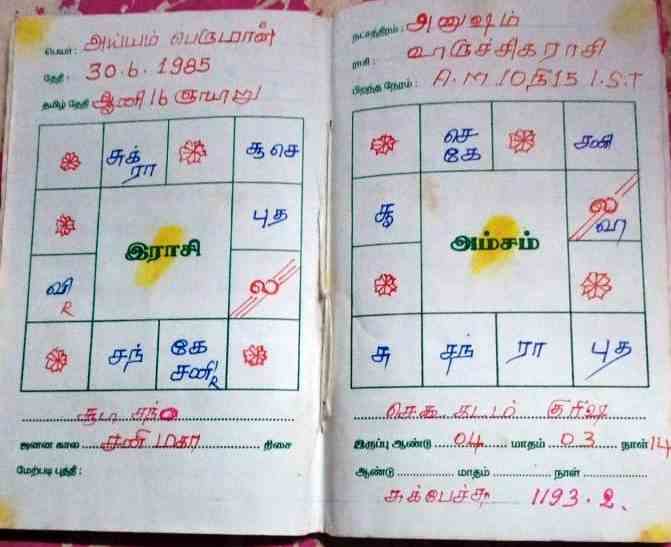 பெயர்: அய்யம் பெருமான்
தேதி: 30.6.1985
தமிழ் தேதி ஆனி 16 ஞாயிறு
சுக்
ரா
சூ செ
புத
இராசி
வி
R
ல
சந்
கே
சனி
R
ஜனன கால சனி மகா திசை
மேற்படி புத்தி:
நட்சத்திரம்: அனுஷம்
ராசி: விருச்சிகராசி
பிறந்த நேரம்: A.M 10.15 I.S.T
செ
கே
சனி
சூ
ல
வி
அம்சம்
சு
சந்
ரா
புத
இருப்பு ஆண்டு 04 மாதம் 03 நாள் 14
ஆண்டு மாதம் நாள்
1193.2.